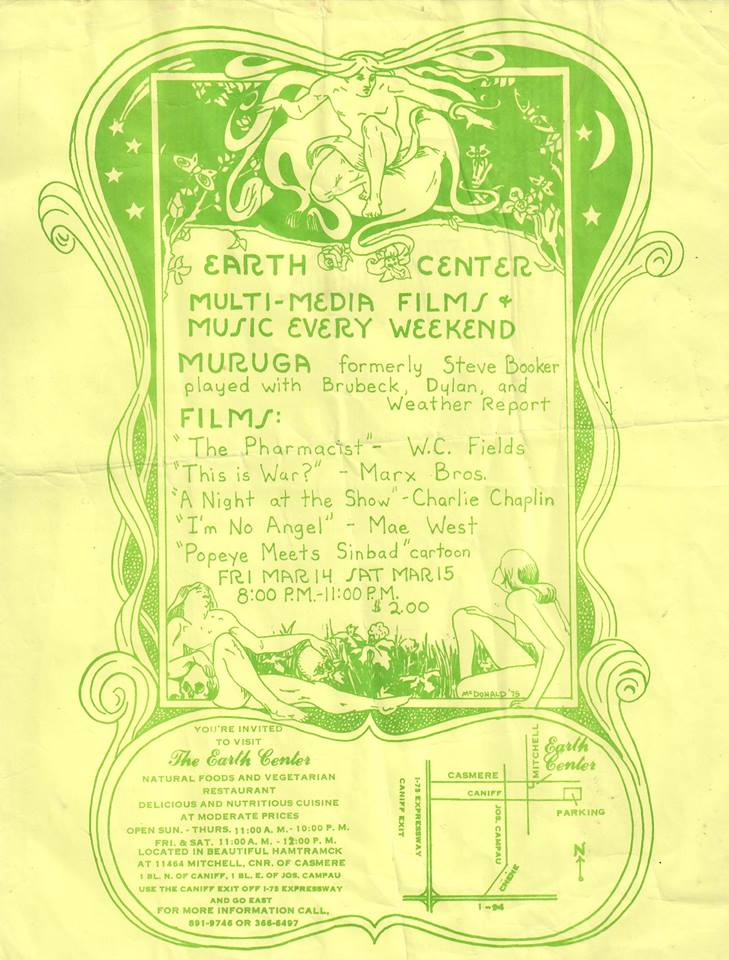 EARTH CENTER
MULTI-MEDIA FILMS +
MUSIC EVERY WEEKEND
MURUGA formerly Steve Booker
played with Brubeck, Dylan, and
Weather Report
FILMS:
"The Pharmacist"- W.C. Fields
"This is War?" - Marx Bros.
"A Night at the Show"-Charlie Chaplin
"I'm No Angel" - Mae West
"Popeye Meets Sinbad" cartoon
FRI MAR 14 SAT MAR 15
8:00 P.M.-11:00 P.M.
$2.00
McDONALD '75
YOU'RE INVITED
TO VISIT
The Earth Center
NATURAL FOODS AND VEGETARIAN
RESTAURANT
DELICIOUS AND NUTRITIOUS CUISINE
AT MODERATE PRICES
OPEN SUN. - THURS. 11:00 A. M. - 10:00 P. M.
FRI. & SAT. 11:00 A. M. - 12:00 P. M.
LOCATED IN BEAUTIFUL HAMTRAMCK
AT 11464 MITCHELL, CNR. OF CASMERE
1 BL. N. OF CANIFF, 1 BL. E. OF JOS. CAMPAU
USE THE CANIFF EXIT OFF I-75 EXPRESSWAY
AND GO EAST
FOR MORE INFORMATION CALL,
891-9746 OR 366-6497
MITCHELL
Earth
Center
CASMERE
CANIFF
PARKING
I-75 EXPRESSWAY
CANIFF EXIT
JOS. CAMPAU
CHENE
N
I-94